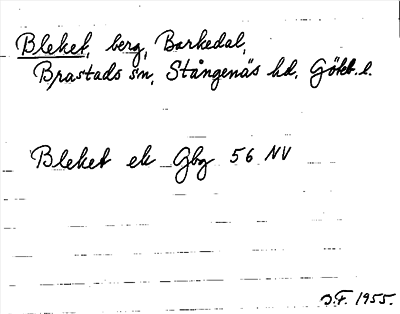 Bleket, berg, Barkedal,
Brastads sn, Stångenäs hd, Göteb. l.
Bleket ek Gbg 56 NV
J.F. 1955.